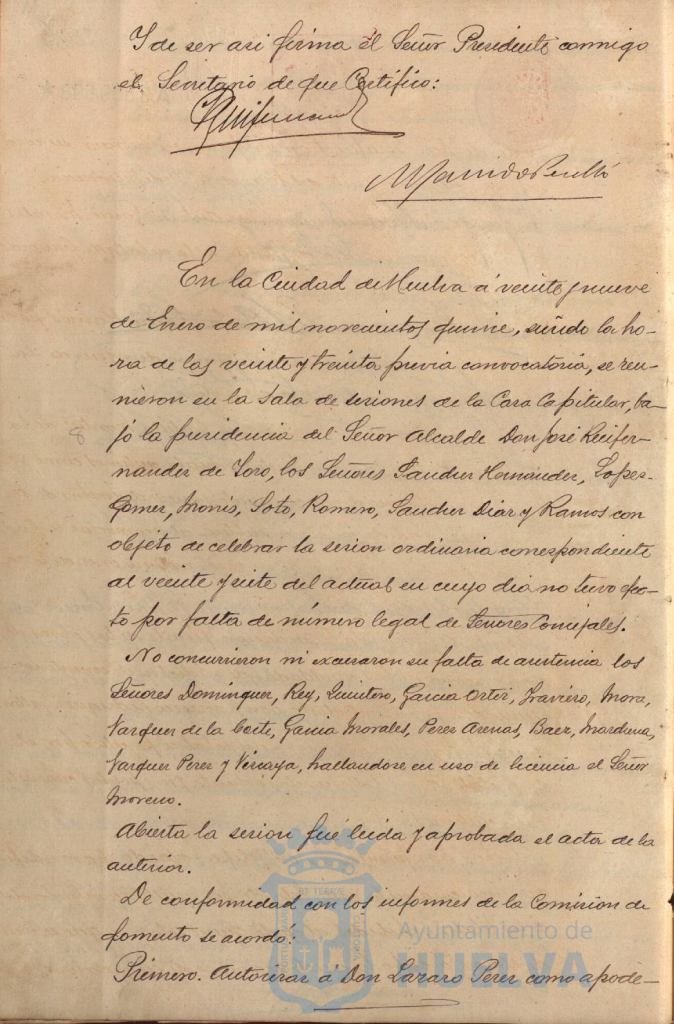 Y de ser asi firma el Señor Presidente conmigo
el Secretario de que Certifico:
En la Ciudad de Huelva á veinte y nueve
de Enero de mil novecientos quince, siendo la ho-
ra de las veinte y treinta previa convocatoria, se reu-
nieron en la Sala de sesiones de la Casa Capitular, ba-
jo la presidencia del Señor Alcalde Don José
nandez de Toro, los Señores Sanchez Hernandez, Lopez
Gomez, Monís, Soto, Romero, Sanchez Diaz y Ramos con
objeto de celebrar la sesion ordinaria correspondiente
al veinte y siete del actual en cuyo dia no tuvo efec-
to por falta de número legal de Señores Concejales.
No concurrieron ni excusaron su falta de asistencia los
Señores Dominguez, Rey, Quintero, Garcia Ortiz, Traviero, Mora,
Vazquez de la Corte, Garcia Morales, Perez Arenas, Baez, Marchena,
Vazquez Perez y Vizcaya, hallandose en uso de licencia el Señor
Moreno.
Abierta la sesion fué leida y aprobada el acta de la
anterior.
De conformidad con los informes de la Comision de
fomento se acordó:
Primero. Autorizar á Don Lazaro Perez como apode-
Ayuntamiento de
HUELVA